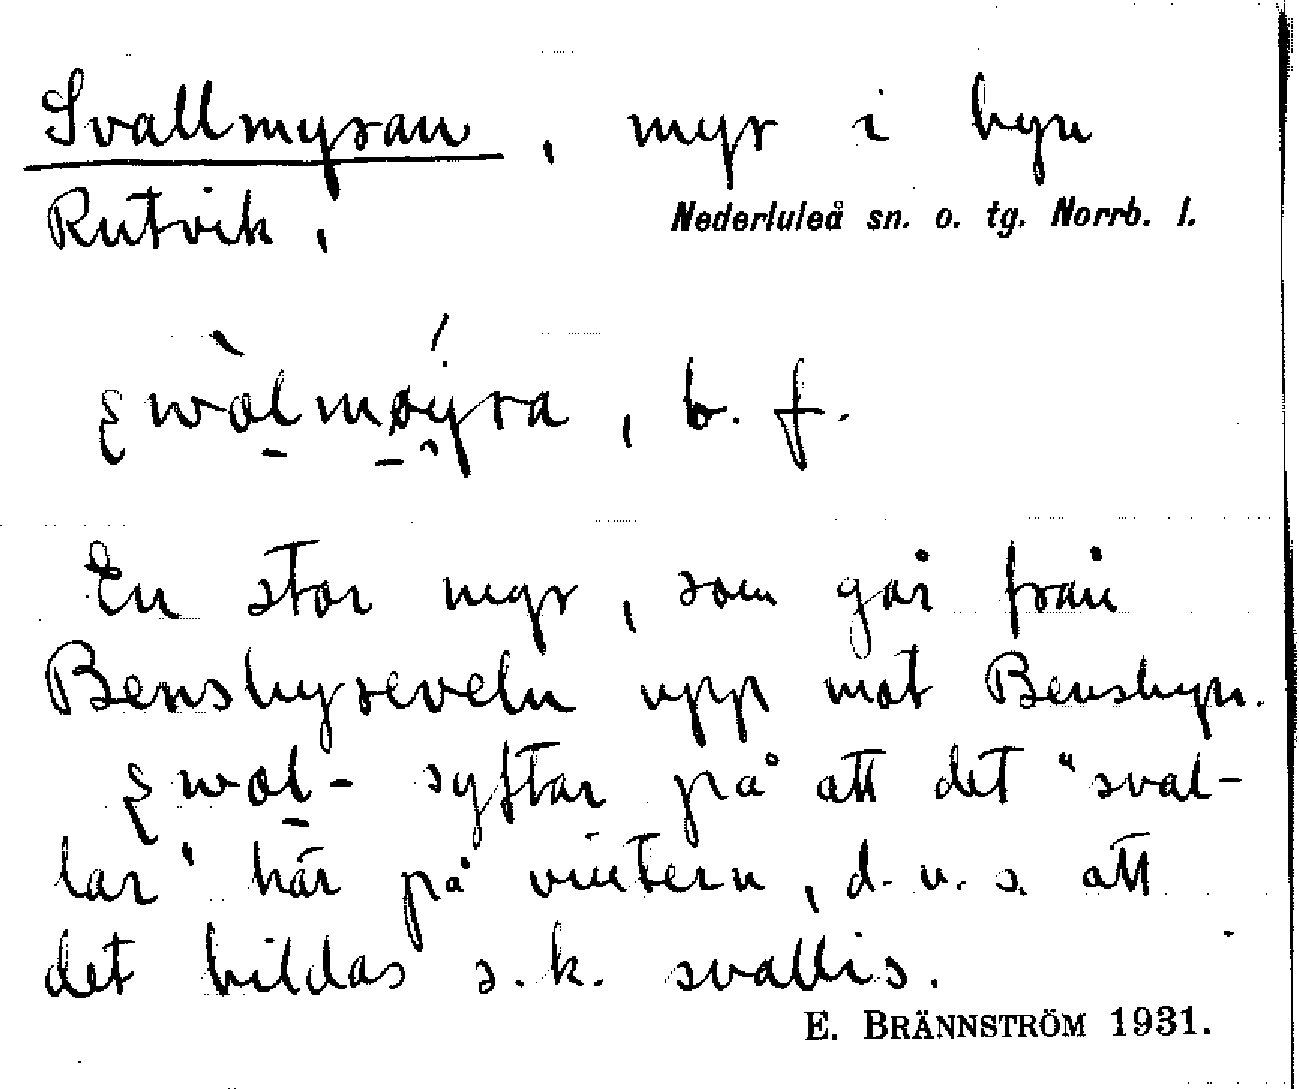 Svallmyran, myr i byn
Rutvik,
Nederluleå sn. o. tg. Norrb. l.
b. f.
En stor myr, som går från
Bensbyreveln upp mot Bensbyn.
syftar på att det "sval-
lar" här på vintern, d.v.s. att
det bildas s.k. svallis.
E. BRÄNNSTRÖM 1931.